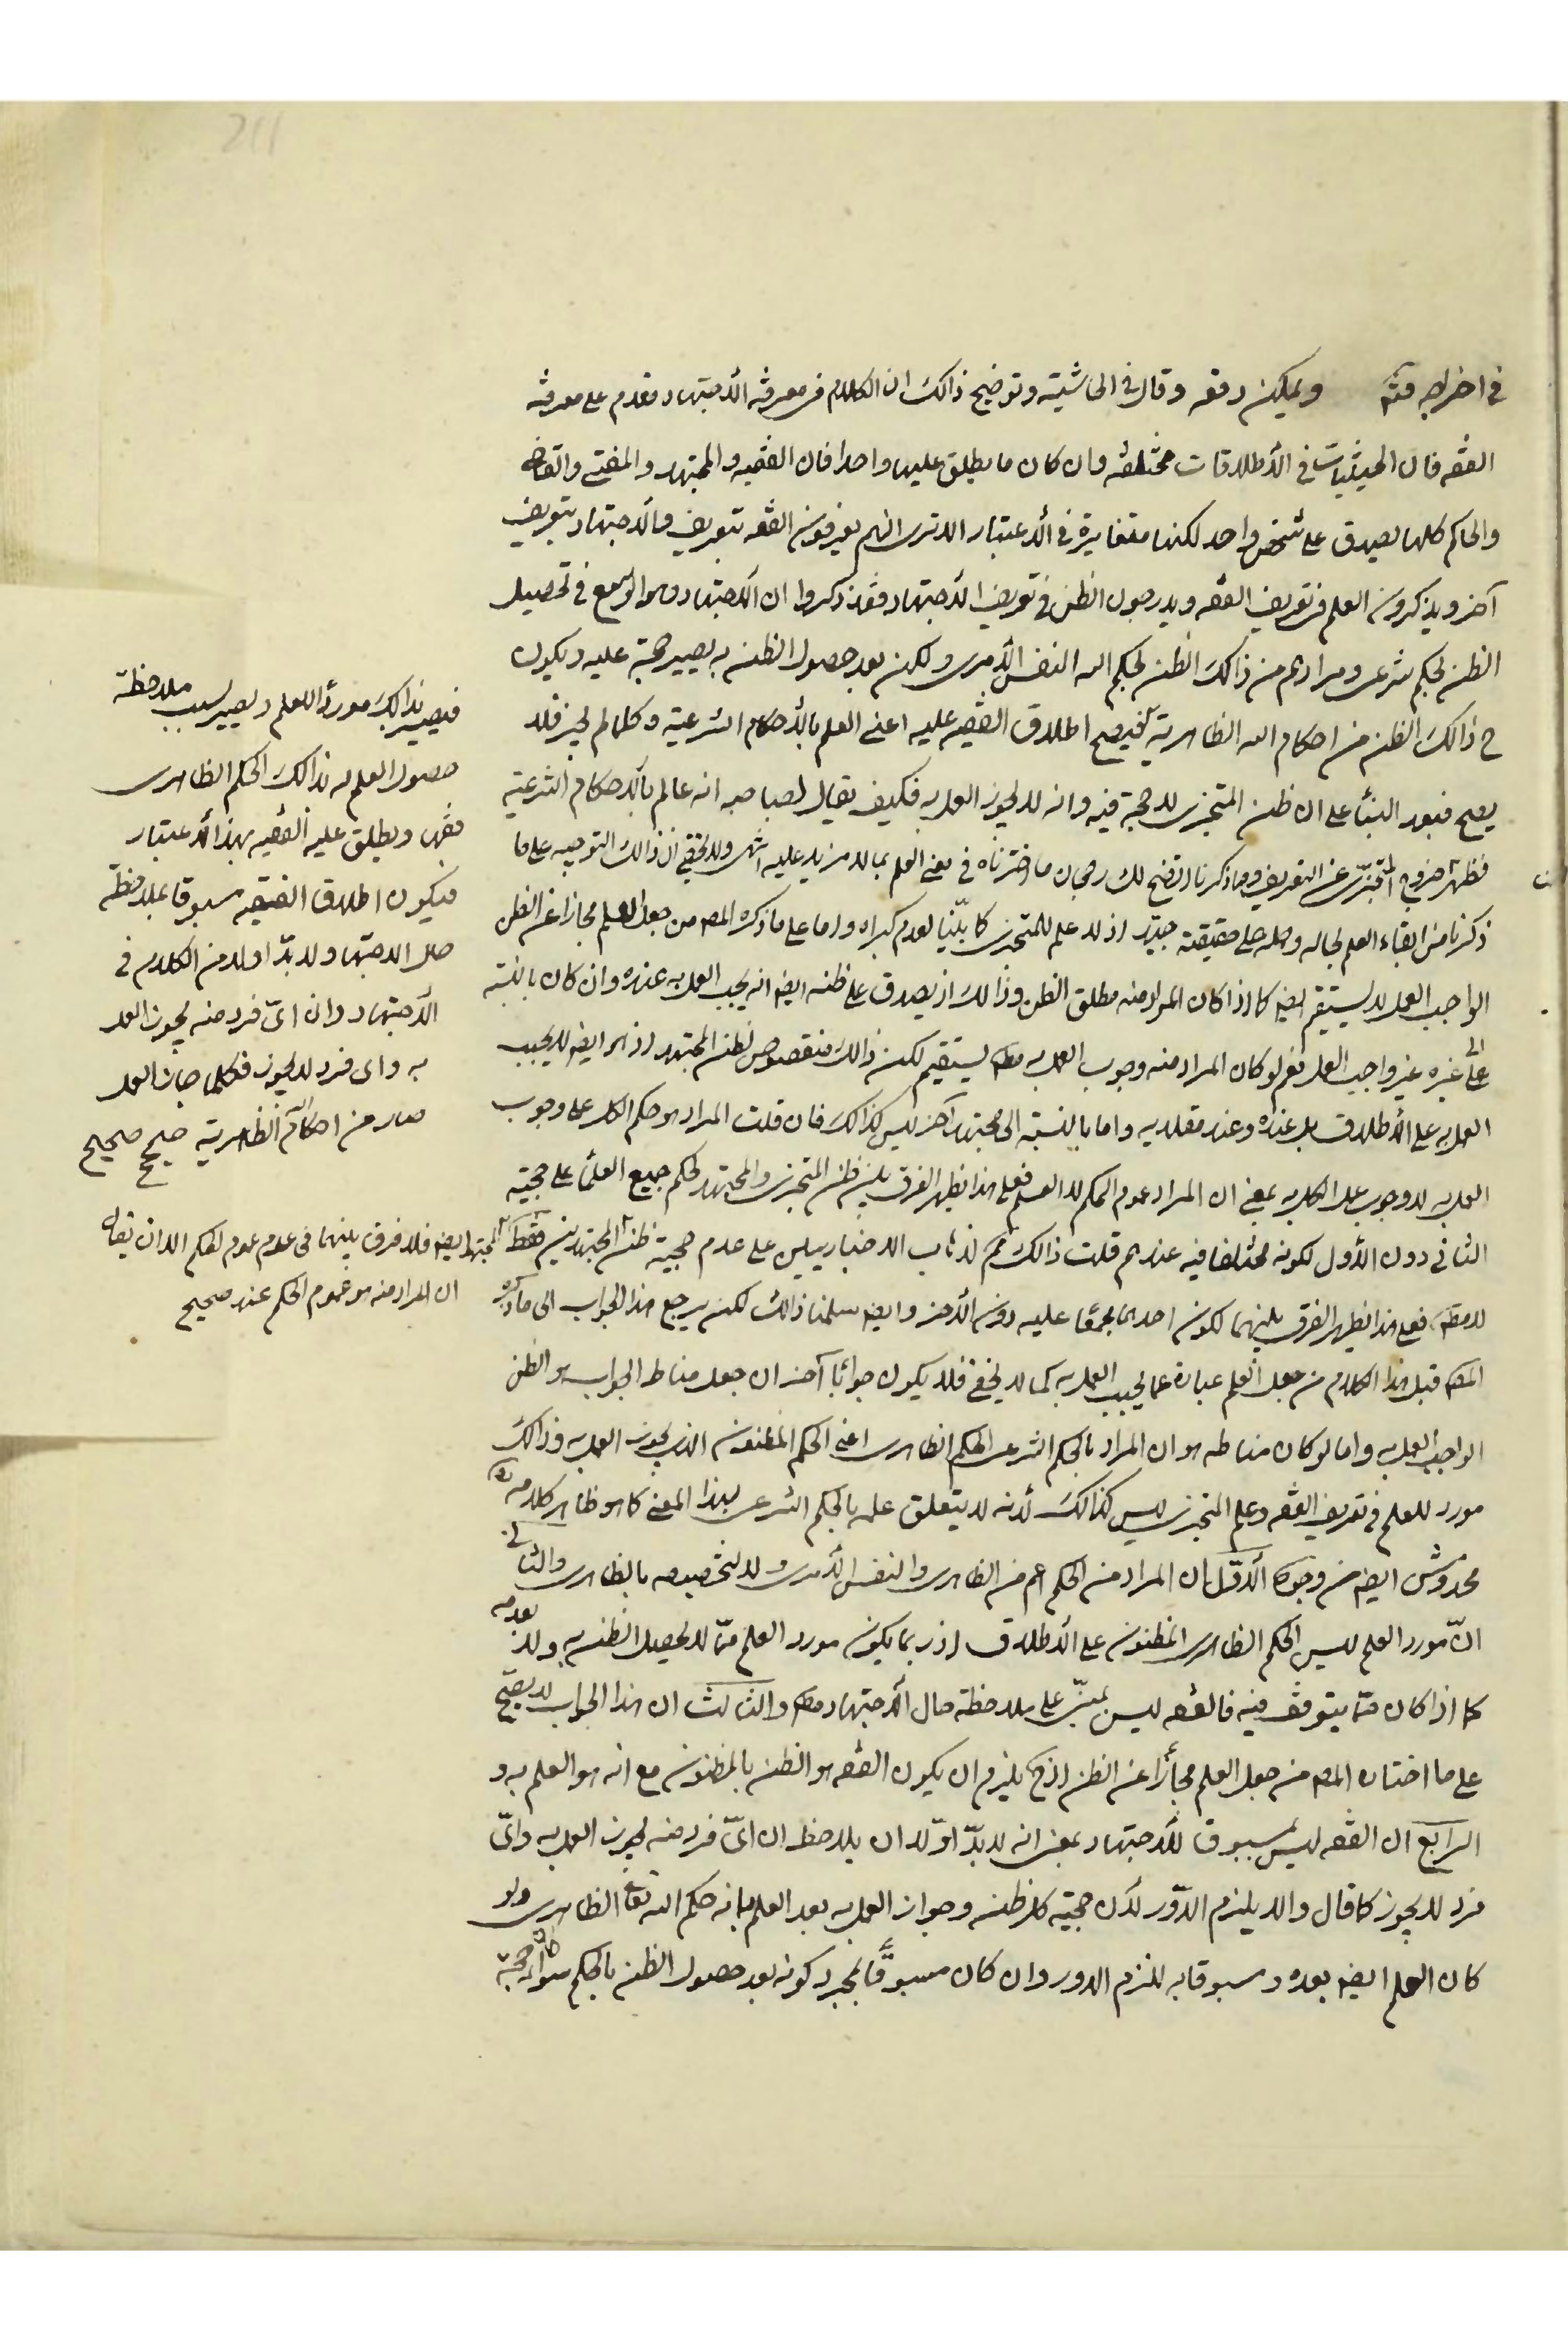 211
في اخراجه فتم ويمكن دفعه وقال في الحاشية وتوضيح ذالك ان الكلام في معرفة الأجتهاد مقدم على معرفة
الفقه فان الحيثيات في الأطلاقات مختلفة وان كان ما يطلق عليها واحدا فان الفقيه والمجتهد والمفتي والقاضي
والحاكم كلها يصدق على شخص واحد لكنها متغايرة في الأعتبار الا ترى انهم يعرفون الفقه بتعريف والأجتهاد بتعريف
آخر ويذكرون العلم في تعريف الفقه ويدرجون الظن في تعريف الأجتهاد فقد ذكروا ان الأجتهاد هو الوسع في تحصيل
الظن بحكم شرعي ومرادهم من ذالك الظن بحكم الله النفس الأمري ولكن بعد حصول الظن به يصير حجة عليه ويكون
ح ذالك الظن من احكام الله الظاهرية فيصح اطلاق الفقيه عليه اعني العلم بالأحكام الشرعية وكلما لم يجز فلا
يصح فبعد البناء على ان ظن المتجزي لا حجة فيه وانه لا يجوز العمل به فكيف يقال لصاحبه انه عالم بالأحكام الشرعية
فظهر خروج المتجزي عن التعريف ومما ذكرنا اتضح لك رجحان ما اخترناه في معنى العلم بما لا مزيد عليه انتهى ولا يخفى ان ذالك التوجيه على ما
ذكرنا من ابقاء العلم لحاله وحمله على حقيقته جيد اذ لا علم للمتجزي كما بيّنا لعدم كبراه واما على ما ذكره المصـ من جعل العلم مجازا عن الظن
الواجب العمل لا يستقيم ايضـ كما اذا كان المراد منه مطلق الظن وذالك اذ يصدق على ظنه ايضـ انه يجب العمل به عنده وان كان بالنسبة
الى غيره غير واجب العمل نعم لو كان المراد منه وجوب العمل به مطـ يستقيم لكن ذالك منقوص بظن المجتهد اذ هو ايضـ لا يجب
العمل به على الأطلاق بل عنده وعند مقلديه واما بالنسبة الى مجتهد آخر ليس كذالك فان قلت المراد هو حكم الكل على وجوب
العمل به لا وجوب عمل الكل به بمعنى ان المراد عموم الحكم لا العمل فعلى هذا يظهر الفرق بين ظن المتجزي والمجتهد لحكم جميع العلماء على حجية
الثاني دون الأول لكونه مختلفا فيه عندهم قلت ذالك ثم لذهاب الاخباريين على عدم حجية ظن المجتهدين فقط
لا مطـ فعلى هذا يظهر الفرق بينهما لكون احدهما مجمعا عليه دون الأخر وايضـ سلمنا ذالك لكن يرجع هذا الجواب الى ما ذكره
المصـ قبل هذا الكلام من جعل العلم عبارة عما يجب العمل به كما لا يخفى فلا يكون جوابا آخر ان جعل مناط الجواب هو الظن
الواجب العمل به واما لو كان مناطه هو ان المراد بالحكم الشرعي الحكم الظاهري اعني الحكم المظنون الذي يجوز العمل به وذالك
مورد للعلم في تعريف الفقه وعلم المتجزي ليس كذالك لأنه لا يتعلق علمه بالحكم الشرعي بهذا المعنى كما هو ظاهر كلامه
مخدوش ايضـ من وجوه الأول ان المراد من الحكم اعم من الظاهري والنفس الأمري ولا لتخصيصه بالظاهري والثاني
انّ مورد العلم ليس الحكم الظاهري المظنون على الأطلاق اذ ربما يكون مورد العلم ممّا لا يحصل الظن به ولا بعدمه
كما اذا كان ممّا يتوقف فيه فالفقه ليس بمبنيّ على ملاحظة حال الأجتهاد مطـ والثالث ان هذا الجواب لا يصحّ
على ما اختاره المصـ من جعل العلم مجازا عن الظن اذ ح يلزم ان يكون الفقه هو الظن بالمظنون مع انه هو العلم به و
الرابع ان الفقه ليس بمسبوق للأجتهاد بمعنى انه لا بدّ اوّلا ان يلاحظ ان ايّ فرد منه يجوز العمل به وايّ
فرد لا يجوز كما قال والا يلزم الدّور لأن حجية كل ظن وجواز العمل به بعد العلم بانه حكم الله تعا الظاهري ولو
كان العلم ايضـ بعده ومسبوقا به للزم الدور وان كان مسبوقا بمجرد كونه بعد حصول الظن بالحكم سواء كان حجة
فيصير بذالك موردا للعلم ويصير بسبب ملاحظة
حصول العلم له بذالك الحكم الظاهري
فقها ويطلق عليه الفقيه بهذا الأعتبار
فيكون اطلاق الفقيه مسبوقا بملاحظة
حال الاجتهاد ولا بدّ اولا من الكلام في
الأجتهاد وان ايّ فرد منه يجوز العمل
به واي فرد لا يجوز فكلما جاز العمل
صار من احكام الظاهرية صح صحيح
المجتهد ايضـ فلا فرق بينهما في عدم عموم الحكم الا ان يقال
ان المراد منه هو عموم الحكم عند صحيح